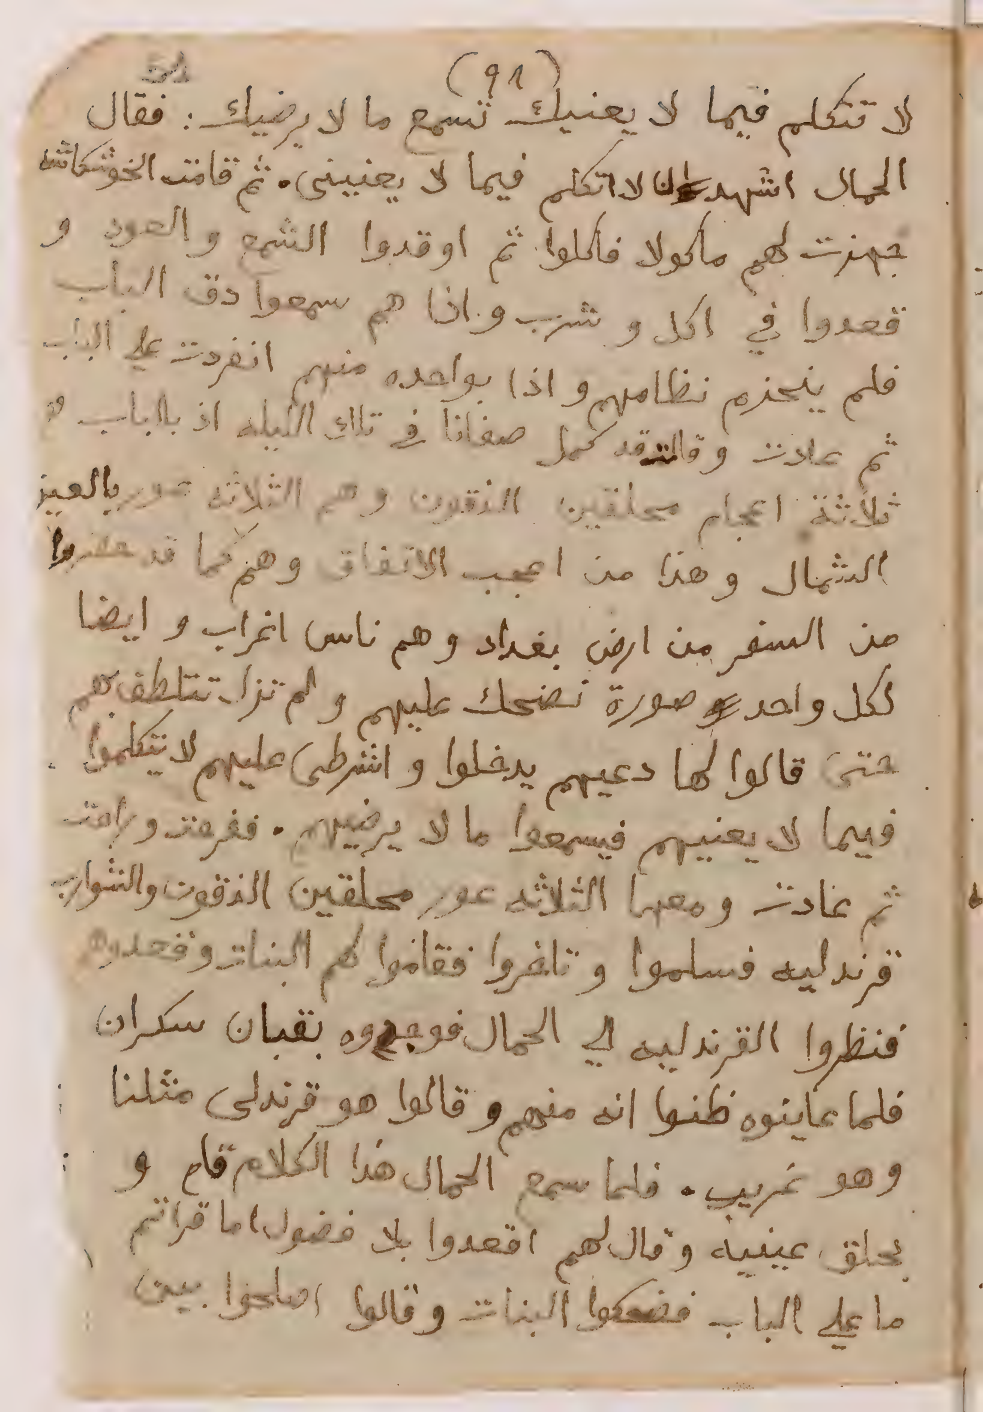 (٩١)
لا تتكلم فيما لا يعنيك تسمع ما لا يرضيك : فقال
الحمال اشهد لا اتكلم فيما لا يعنيني . ثم قامت الخوشكاشه
جهزت لهم ماكولا فاكلوا ثم اوقدوا الشمع والعود و
قعدوا في اكل و شرب و اذا هم سمعوا دق الباب
فلم ينخذم نظامهم و اذا بواحده منهم انفردت على الباب
ثم عادت و قالت قد كمل صفانا في تلك الليله اذ بالباب
ثلاثة اعجام محلقين الذقون و هم الثلاثه عور بالعين
الشمال و هذا من اعجب الاتفاق و هم كما قد حضروا
من السفر من ارض بغداد و هم ناس اغراب و ايضا
لكل واحد صورة نضحك عليهم و لم تزل تتلطف بهم
حتى قالوا لها دعيهم يدخلوا و اشرطى عليهم لا يتكلموا
فيما لا يعنيهم فيسمعوا ما لا يرضيهم . ففرحت و راحت
ثم عادت و معها الثلاثه عور محلقين الذقون والشوارب
قرندليه فسلموا و تاخروا فقاموا لهم البنات وقعدوهم
فنظروا القرندليه الي الحمال فوجدوه بقبان سكران
فلما عاينوه ظنوا انه منهم و قالوا هو قرندلى مثلنا
و هو غريب . فلما سمع الحمال هذا الكلام قام و
بحلق عينيه و قال لهم اقعدوا بلا فضول اما قراتم
ما على الباب فضحكوا البنات و قالوا اصلحوا بين